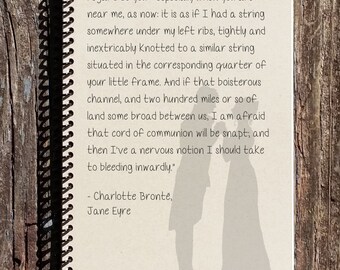 near me, as now: it is as if I had a string
somewhere under my left ribs, tightly and
inextricably knotted to a similar string
situated in the corresponding quarter of
your little frame. And if that boisterous
channel, and two hundred miles or so of
land some broad between us, I am afraid
that cord of communion will be snapt; and
then I've a nervous notion I should take
to bleeding inwardly."
- Charlotte Brontë,
Jane Eyre